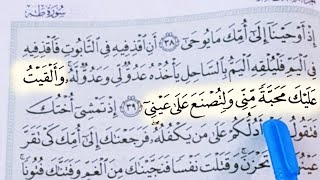 سورة طه
إِذْ أَوْحَيْنَا إِلَىٰ أُمِّكَ مَا يُوحَىٰ ٣٨ أَنِ اقْذِفِيهِ فِي التَّابُوتِ فَاقْذِفِيهِ
فِي الْيَمِّ فَلْيُلْقِهِ الْيَمُّ بِالسَّاحِلِ يَأْخُذْهُ عَدُوٌّ لِّي وَعَدُوٌّ لَّهُ وَأَلْقَيْتُ
عَلَيْكَ مَحَبَّةً مِّنِّي وَلِتُصْنَعَ عَلَىٰ عَيْنِي ٣٩ إِذْ تَمْشِي أُخْتُكَ
فَتَقُولُ أَدُلُّكُمْ عَلَىٰ مَن يَكْفُلُهُ فَرَجَعْنَاكَ إِلَىٰ أُمِّكَ كَيْ تَقَرَّ
تَحْزَنَ وَقَتَلْتَ نَفْسًا فَنَجَّيْنَاكَ مِنَ الْغَمِّ وَفَتَنَّاكَ فُتُونًا